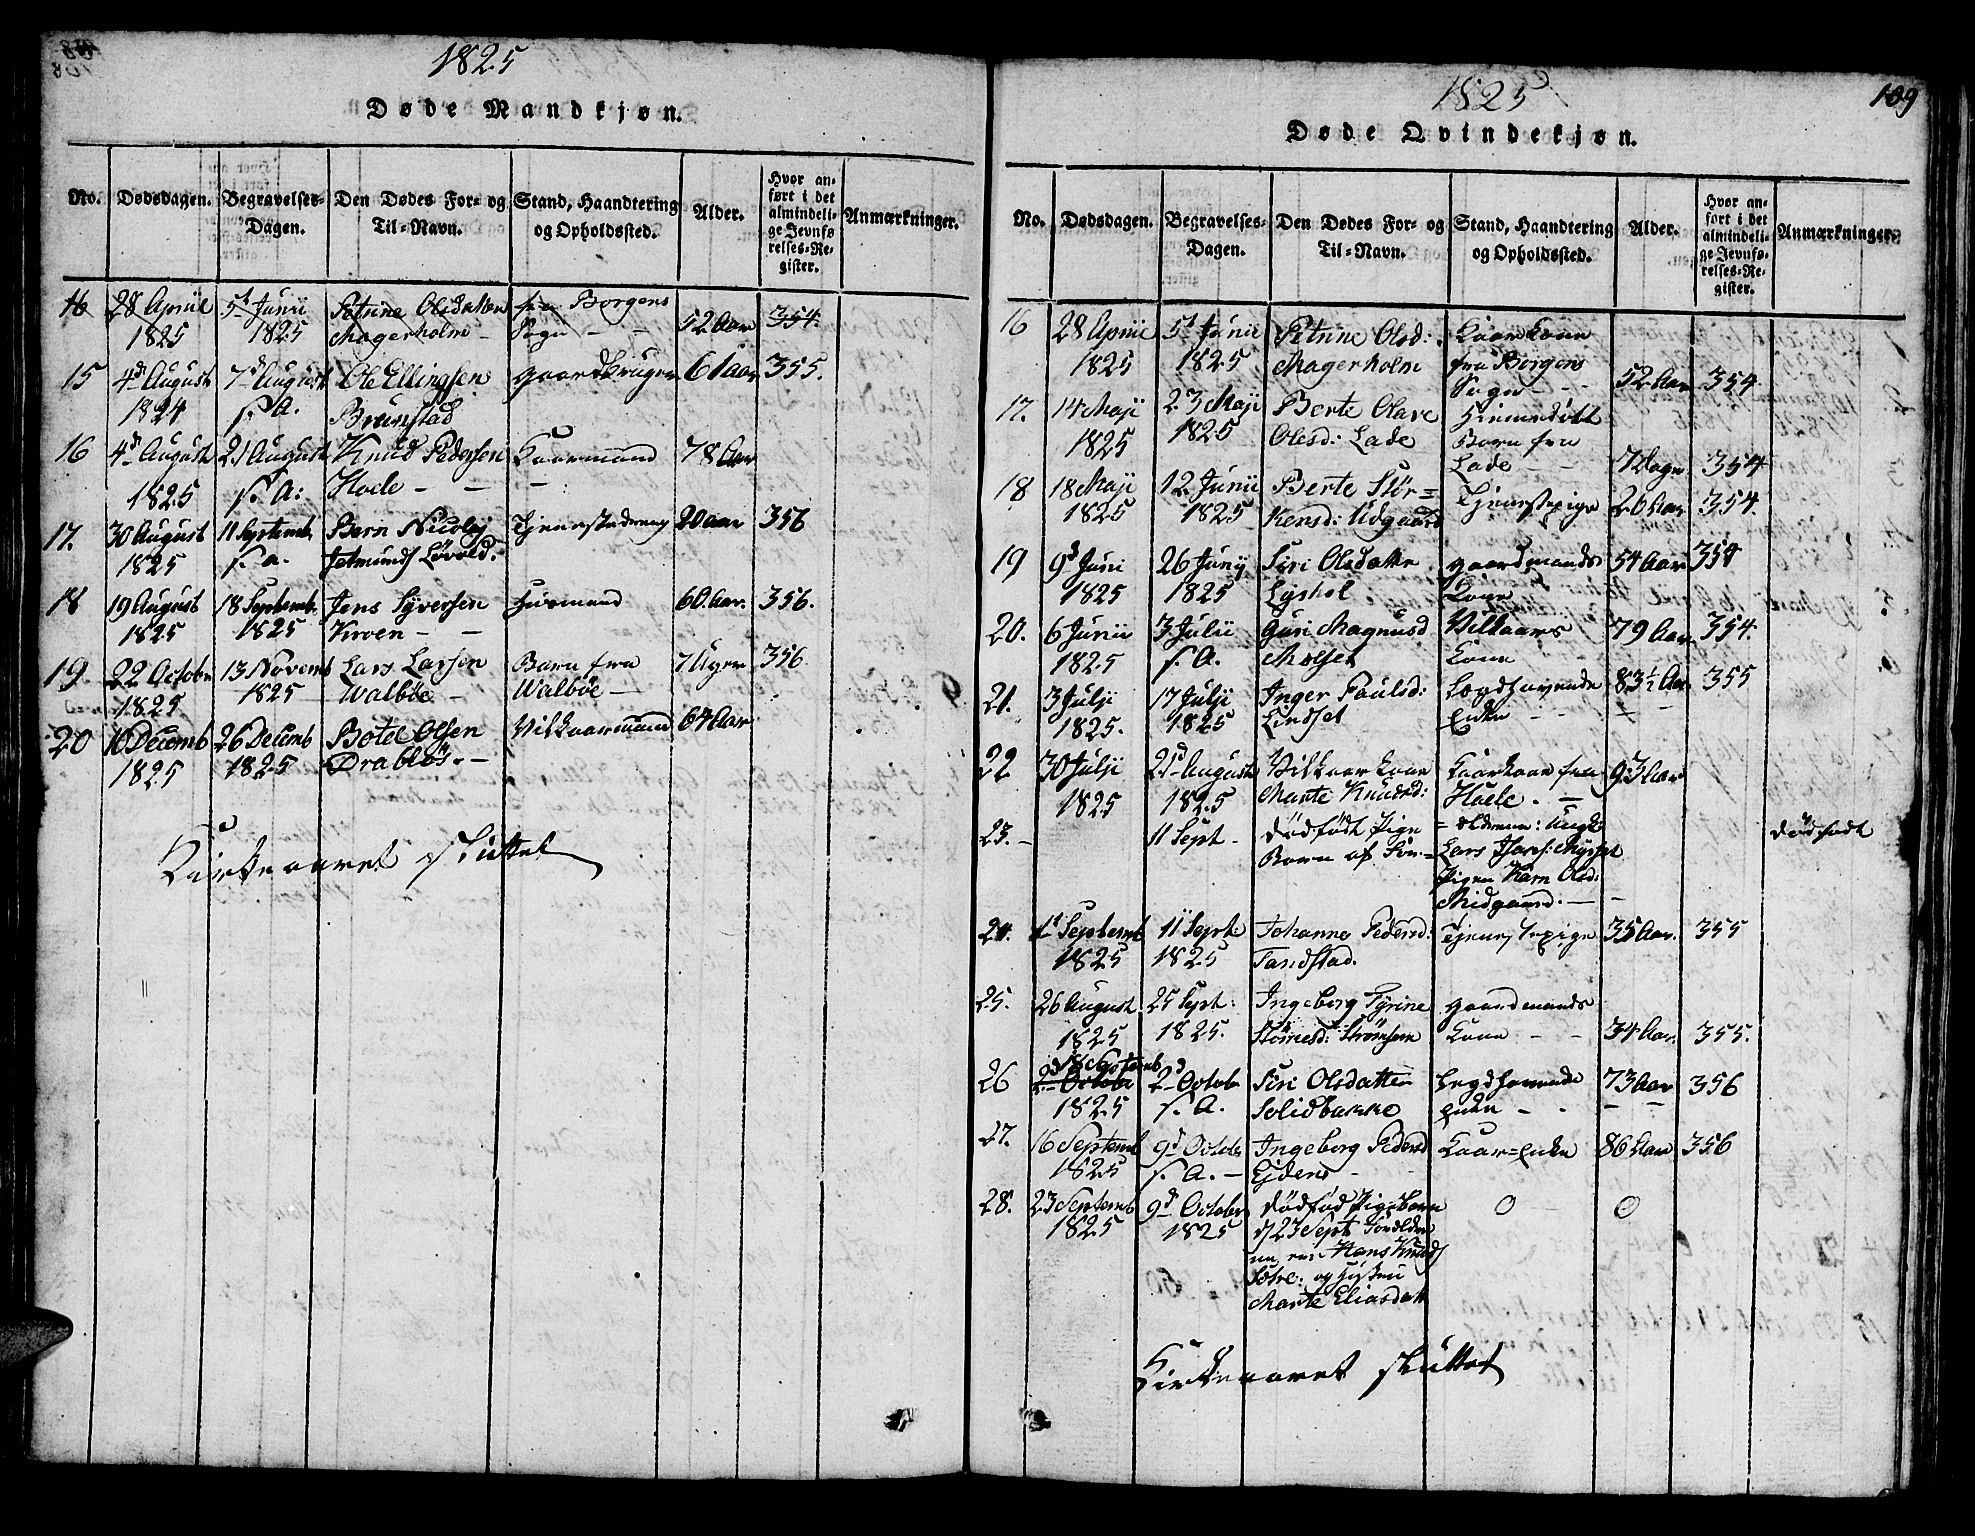 1825
Døde Mandkjøn.
No. Dødsdagen. Begravelses-Dagen. Den Dødes For- og Til-Navn. Stand, Haandtering og Opholdssted. Alder. Hvor anført i det almindelige Jevnførelses-Register. Anmærkninger.
16 28 Apriil 5t Junii Petrine Olsdatter fra Borgens 52 Aar 354.
1825 1825 Magerholm - Sogn - -
15 4d August 7d August Ole Ellingsen 61 aar 355.
1824 s. A. Brunstad
16 4d August 21 August Knud Pedersen Kaarmand 78 Aar
1825 s. A: Hoele - - -
17. 30 August 11 Septemb Bern Nicolaj 20 aar 356
1825 s. a. Jetmunds Løvold.
18 19 August 18 Septemb. Jens Syversen Huusmand 60. Aar. 356.
1825 1825 Kirven - -
19 22 Octobr 13 Novemb Lars Larsen Barn fra 7 Uger 356
1825 1825 Walbøe - Walbøe -
20 16 Decemb 26 Decemb Botel Olsen Vilkaarmand 64 Aar
1825 1825 Drabløs. -
Kirkeaaret sluttet
1825
109
Døde Qvindekjøn.
No. Dødsdagen. Begravelses-Dagen. Den Dødes For- og Til-Navn. Stand, Haandtering og Opholdssted. Alder. Hvor anført i det almindelige Jevnførelses-Register. Anmærkninger.
16 28 Apriil 5t Junii Petrine Olsd: Kaarkone
1825 1825 Magerholm fra Borgens
Sogn - - 52 Aar 354
17. 14 Maji 23 Maji Berte Olave Hiemedøbt
1825 1825 Olesd: Lade Barn fra
Lade - - 7 Dage 354
18 18 Maji 12 Junii Berte Stör= Tjenestepige 26 Aar 354.
1825 1825 Kensd: Udgaard
19 9d Juni 26 Junij Siri Olsdatter gaardmands 54 Aar 354
1825 1825 Lyshol Kone
20. 6 Junii 3 Julii Guri Magnusd Vilkaars 79 Aar 354.
1825 s. A. Molset Kone
21. 3 Julji 17 Julji Inger Paulsd: Legdhavende 83½ Aar 355
1825. 1825 Lindset Enke - -
22 30 Julji 21d August Vilkaar kone Kaarkone fra 93 Aar
1825 1825 Marte Knudsd: Hoele. -
23. - 11 Sept - dødfødt Pige =ældrene: Ungk: dødfødt
Barn af For= Lars Hans: Mysset
Pigen Karn Olsd:
Midgaard. - -
24. 1t Septemb 11 Septb Johanne Pedersd: Tjenestepige 35 Aar. 355
1825 1825 Tandstad.
25. 26 August 25 Sept: Ingeborg Pyrine gaardmands
1825 1825. Størresd: Strømsem Kone - - 34 Aar. 355.
18 Septemb
26 2d Octobr 2d Octobr Siri Olsdatter Legdhavende 73 Aar 356
1825 s. A. Solidbakke Enke - - - -
27. 16 Septemb 9d Octobr Ingeborg Pedersd Kaar=Enke 86 Aar 356
1825 s. A. - Ejdem -
28. 23 Septemb 9d Octobr dødfød Pigebarn O O
1825 1825 d/23 Sept Forældre
ne, ere Hans Knuds
Sætre: og Hustru
Marte Eliasdatt
Kirkeaaret sluttet